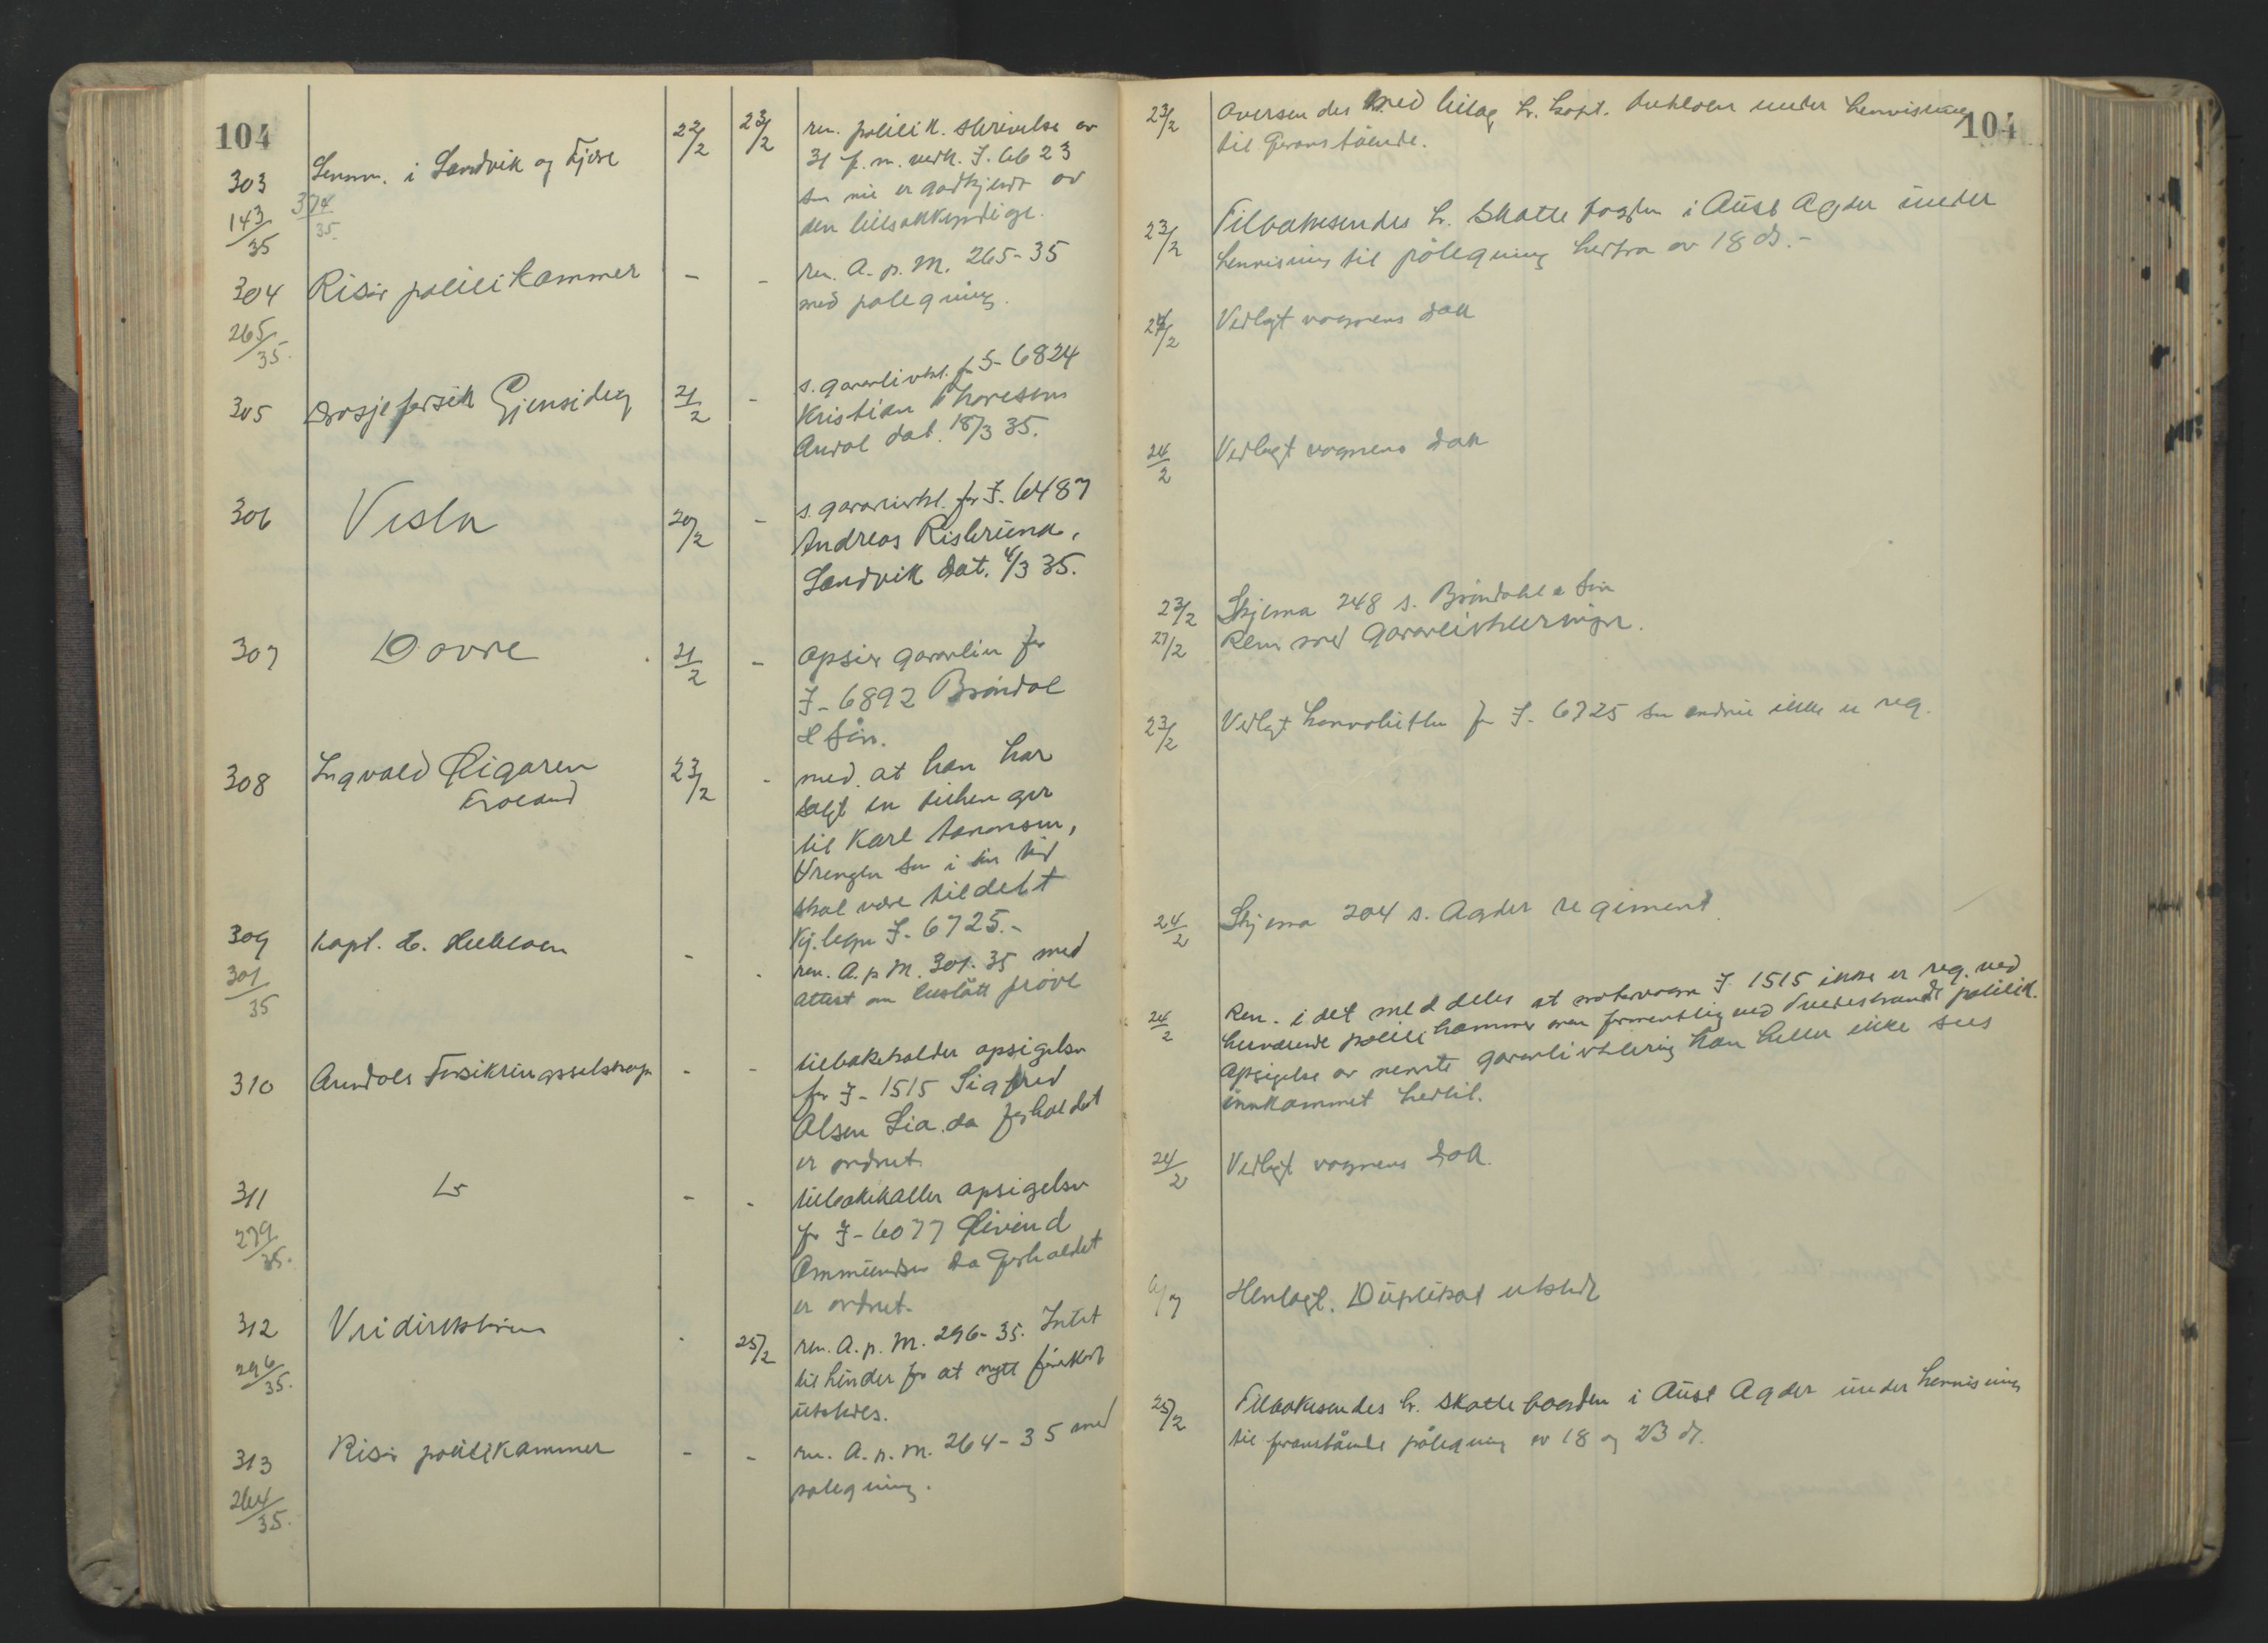 104
303
143/35
374/35.
Lensm. i Sandvik og Fjere
22/2
23/2
ren. politik. skrivelse av
31 f.m. vedk. J. 6623
som nu er godkjent av
den bilsakkyndige.
304
265/35.
Risør politikammer
-
-
ren. A. p. M. 265-35
med påtegning.
305
Drosjeforsik Gjensidig
21/2
-
s. garantierkl. for J- 6824
Kristian Thoresen
Arendal dat. 18/3 35.
306
Vesta
20/2
-
s. garantierkl. for J. 6487
Andreas Risbrunn,
Sandvik dat. 4/3 35.
307
Dovre
21/2
-
opsier garantien for
J- 6892 Brøndal
& Søn.
308
Ingvald Øigaren
Froland
23/2
-
med. at han har
solgt en tilhenger
til Karl Aanonsen,
Vrengen som i sin tid
skal være tildelt
Kj.tegn J- 6725.-
309
301/35
Kapt. H.
-
-
ren. A. p M. 301-35 med
attest om bestått prøve
310
Arendals Forsikringsselskap
-
-
tilbakekalder opsigelsen
for J- 1515 Sigfred
Olsen Lia da forholdet
er ordnet.
311
279/35.
Do
-
-
tilbakekaller opsigelsen
for J- 6077 Øivind
Ommundsen da forholdet
er ordnet.
312
296/35.
Veidirektøren
-
25/2
ren. A. p. M. 296-35. Intet
til hinder for at nytt førerkort
utstedes.
313
264/35.
Risør politikammer
-
-
ren. A. p. M. 264-35 med
påtegning.
104
23/2
Oversendes med bilag hr. kapt. under henvisning
til foranstående.
23/2
Tilbakesendes hr. Skattefogden i Aust Agder under
henvisning til påtegning herfra av 18 ds.-
24/2
Vedlagt vognens dok
24/2
Vedlagt vognens dok
23/2
Skjema 248 s. Brøndahl & Søn
27/2
Ren. med garantierkleringer.
23/2
Vedlagt konvolutten for J- 6725 som endnu ikke er reg.
24/2
Skjema 204 s. Agder regiment.
24/2
Ren. idet meddeles at motorvogn J 1515 ikke er reg. ved
herværende politikammer men formentlig ved Tvedestrands politik.
Opsigelse av nevnte garantierklering kan heller ikke sees
innkommet hertil.
24/2
Vedlagt vognens dok.
6/7
Henlagt. Duplikat utstedt
25/2
Tilbakesendes hr. skattefogden i Aust Agder under henvisning
til foranstående påtegning av 18 og 23 ds.